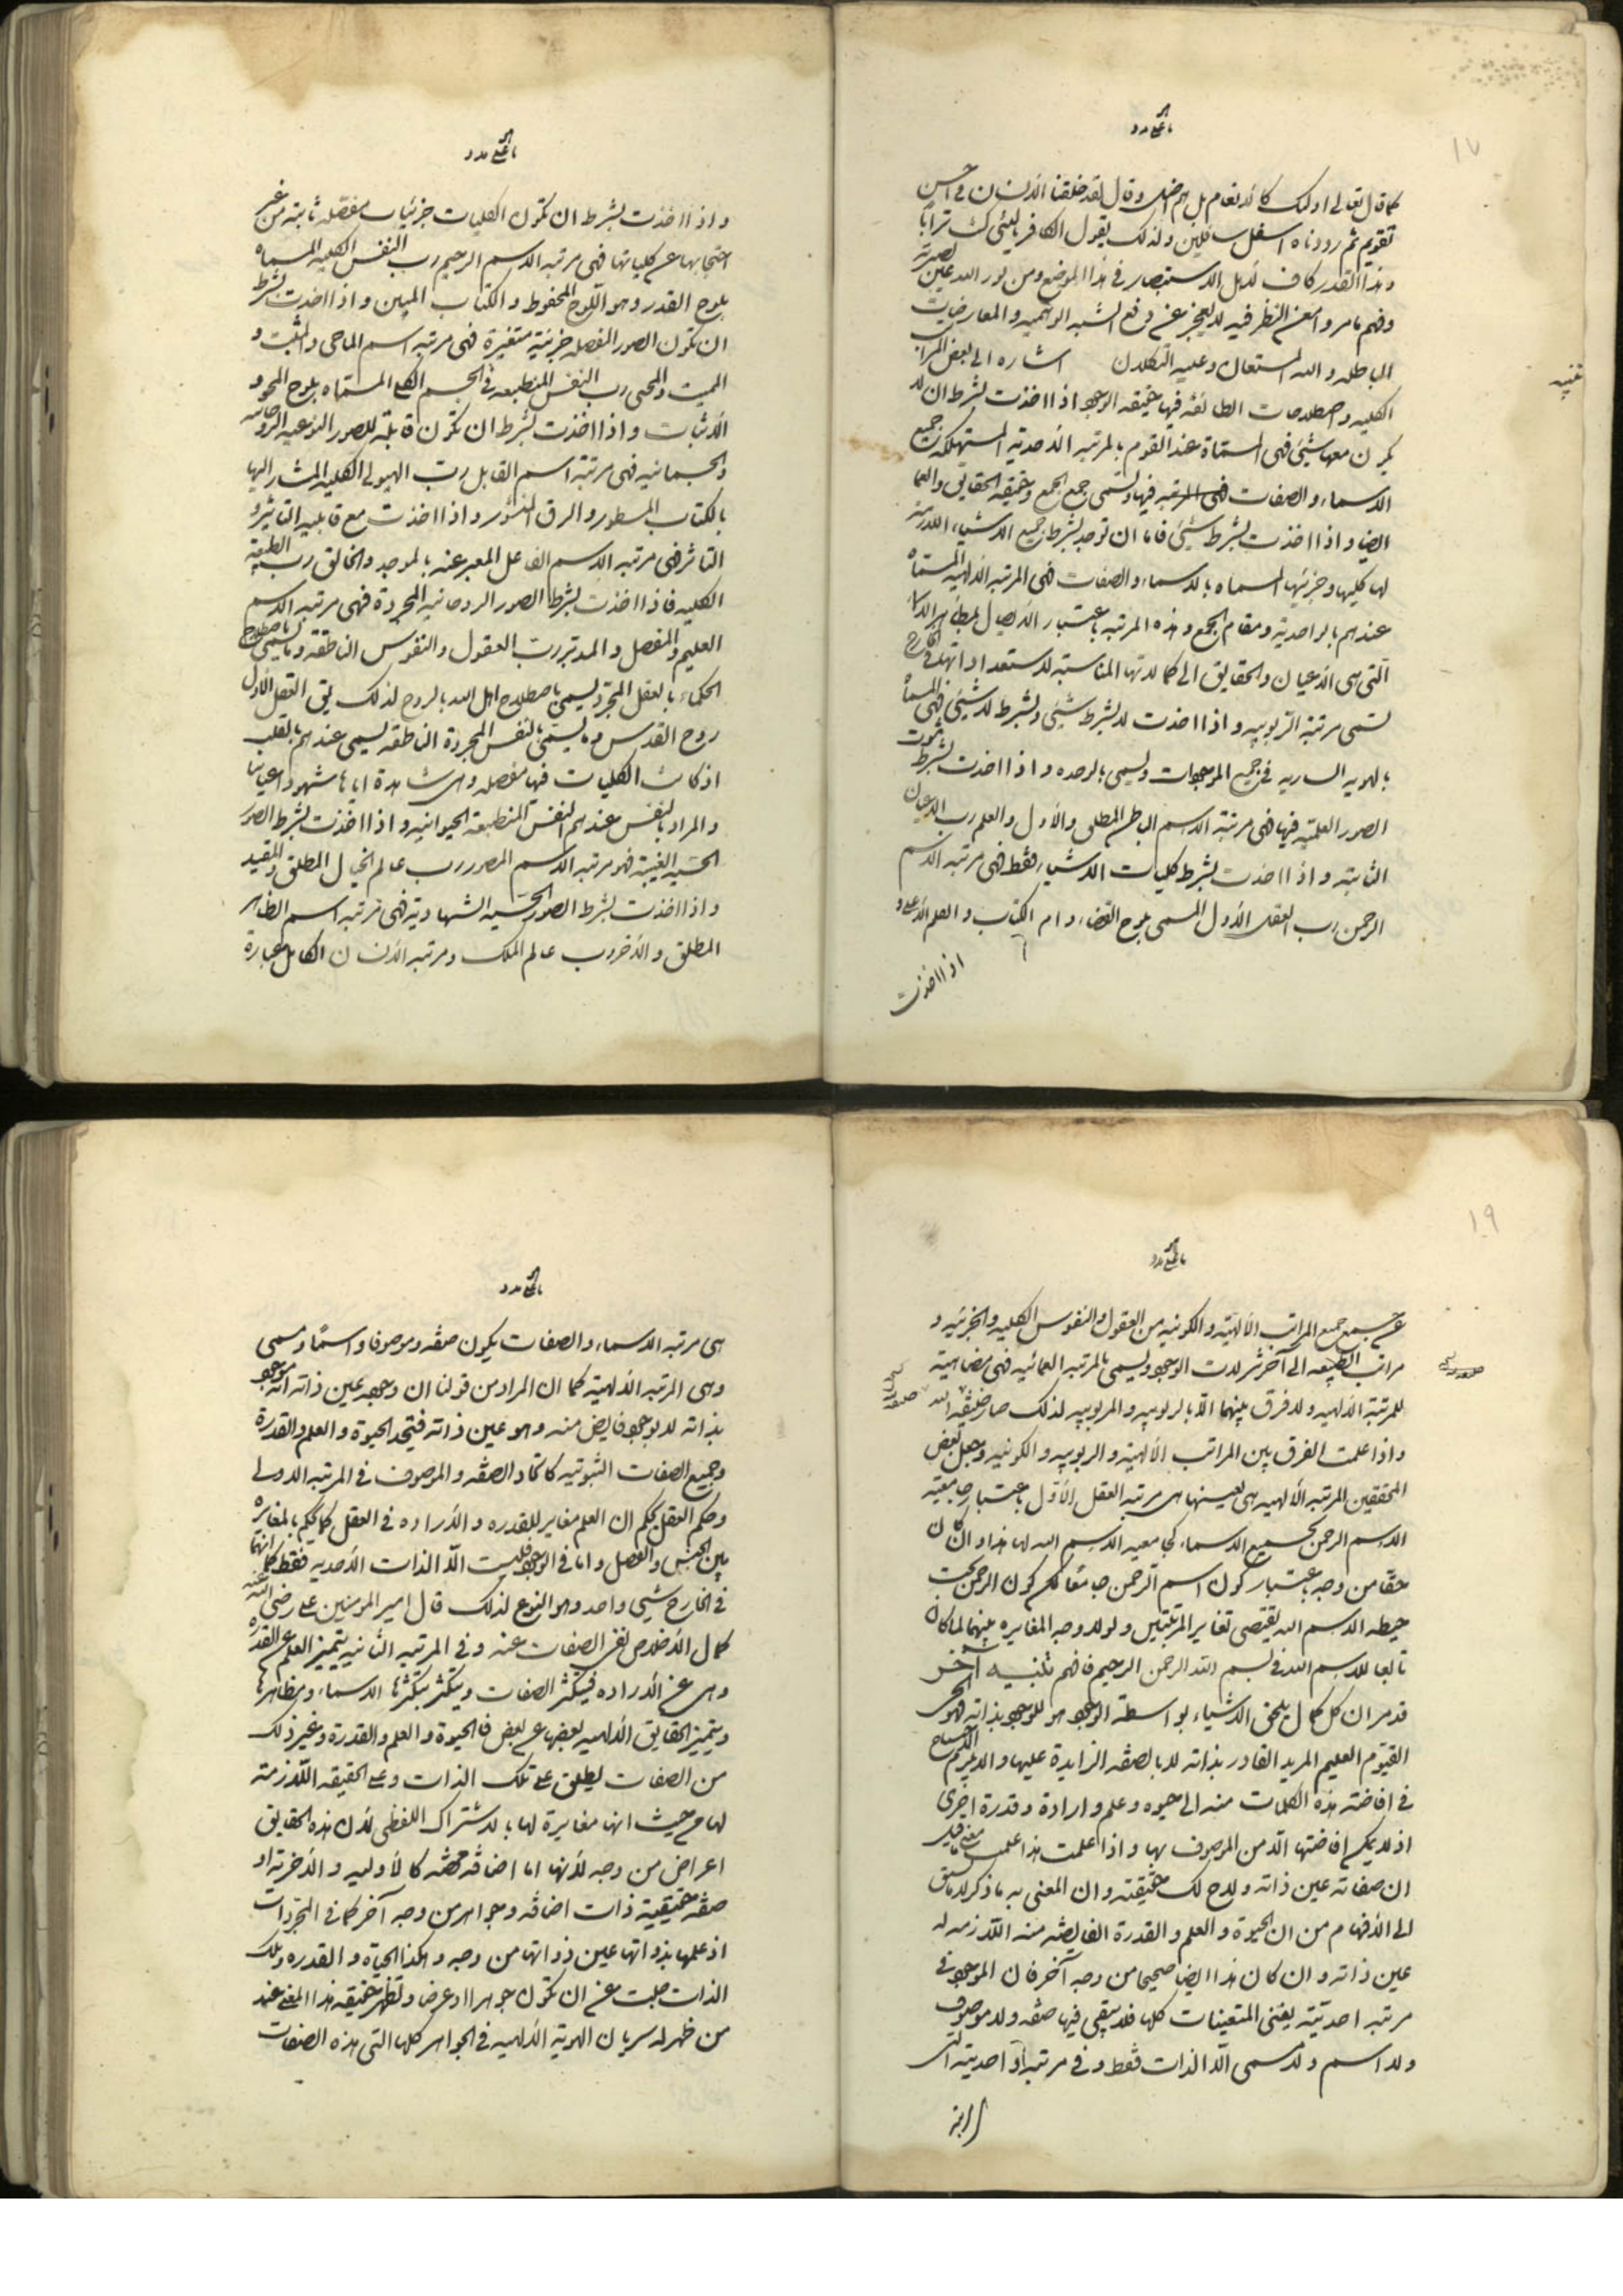 ١٧
كما قال تعالى اولئك كالانعام بل هم اضل وقال لقد خلقنا الانسان في احسن
تقويم ثم رددناه اسفل سافلين ولذلك يقول الكافر يا ليتني كنت ترابا
وهذا القدر كاف لاهل الاستبصار في هذا الموضع ومن نور الله عين بصيرته
وفهم ما مر وامعن النظر فيه لا يعجز عن دفع الشبه الوهميه والمعارضات
الباطله والله المستعان وعليه التكلان اشاره الى بعض المراتب
تنبيه
الكليه واصطلاحات الطائفه فيها حقيقه الوجود اذا اخذت بشرط ان لا
يكون معها شيئ فهي المسماة عند القوم بالمرتبه الاحديه المستهلكه جميع
الاسماء والصفات فيها وتسمى جمع الجمع وحقيقه الحقايق والعما
ايضا واذا اخذت بشرط شيئ فاما ان توخذ بشرط جميع الاشياء اللازمه
لها كليها وجزئيها المسماه بالاسماء والصفات فهي المرتبه الالهيه المسماه
عندهم بالواحديه ومقام الجمع وهذه المرتبه باعتبار الايصال لمظاهر الاسماء
التي هي الاعيان والحقايق الى كمالاتها المناسبته لاستعداداتها في الخارج
تسمى مرتبة الربوبيه واذا اخذت لا بشرط شيئ ولا بشرط لا شيئ فهي المسماة
بالهويه الساريه في جميع الموجودات وتسمى بالوحده واذا اخذت بشرط ثبوت
الصور العلميه فيها فهي مرتبة الاسم الباطن المطلق والاول والعلم رب الاعيان
الثابته واذا اخذت بشرط كليات الاشياء فقط فهي مرتبه الاسم
الرحمن رب العقل الاول المسمى بلوح القضاء وام الكتاب والقلم الاعلى و
اذا اخذت
واذا اخذت بشرط ان تكون الكليات جزئيات مفصله ثابته من غير
احتجابها عن كلياتها فهي مرتبه الاسم الرحيم رب النفس الكليه المسماه
بلوح القدر وهو اللوح المحفوظ والكتاب المبين واذا اخذت بشرط
ان تكون الصور المفصله جزئيه متغيرة فهي مرتبه اسم الماحي والمثبت و
المميت والمحيي رب النفس المنطبعه في الجسم الكلي المسماه بلوح المحو و
الاثبات واذا اخذت بشرط ان تكون قابله للصور النوعيه الروحانيه
والجسمانيه فهي مرتبة اسم القابل رب الهيولى الكليه المشار اليها
بالكتاب المسطور والرق المنشور واذا اخذت مع قابليه التاثير و
التاثر فهي مرتبه الاسم الفاعل المعبر عنه بالموجد والخالق رب الطبيعه
الكليه فاذا اخذت بشرط الصور الروحانيه المجردة فهي مرتبه الاسم
العليم والمفصل والمدبر رب العقول والنفوس الناطقه وما يسمى باصطلاح
الحكماء بالعقل المجرد يسمى باصطلاح اهل الله بالروح لذلك يق العقل الاول
روح القدس وما يسمى بالنفس المجردة الناطقه يسمى عندهم بالقلب
اذ كانت الكليات فيها مفصله وهي شاهدة اياها شهودا عيانيا
والمراد بالنفس عندهم النفس المنطبعة الحيوانيه واذا اخذت بشرط الصور
الحسيه الغيبيه فهو مرتبه الاسم المصور رب عالم الخيال المطلق والمقيد
واذا اخذت بشرط الصور الحسيه الشهاديه فهي مرتبه اسم الظاهر
المطلق والاخر رب عالم الملك ومرتبه الانسان الكامل عبارة
١٩
عن جمع جميع المراتب الالهيه والكونيه من العقول والنفوس الكليه والجزئيه و
مراتب الطبيعه الى آخر تنزلات الوجود ويسمى بالمرتبه العمائيه فهي مضاهية
للمرتبة الالهيه ولا فرق بينهما الا بالربوبيه والمربوبيه لذلك صار خليفه الله
واذا علمت الفرق بين المراتب الالهيه والربوبيه والكونيه وجعل بعض
المحققين المرتبه الالهيه هي بعينها هي مرتبه العقل الاول باعتبار جامعيه
الاسم الرحمن لجميع الاسماء كجامعيه الاسم الله لها هذا وان كان
حقا من وجه باعتبار كون اسم الرحمن جامعا لكن كون الرحمن تحت
حيطه الاسم الله يقتضى تغاير المرتبتين ولولا وجه المغايره بينهما لما كان
تابعا للاسم الله في بسم الله الرحمن الرحيم فافهم تنبيه آخر
قد مر ان كل كمال يلحق الاشياء بواسطة الوجود هو للوجود بذاته فهو الحي
القيوم العليم المريد القادر بذاته لا بالصفه الزايدة عليها والا يلزم الاحتياج
في افاضته هذه الكمالات منه الى حيوه وعلم وارادة وقدرة اخرى
اذ لا يمكن افاضتها الا من الموصوف بها واذا علمت هذا علمت معنى ما قيل
ان صفاته عين ذاته ولاح لك حقيقته وان المعنى به ما ذكر لا ما يسبق
الى الافهام من ان الحيوة والعلم والقدرة الفايضه منه اللازمه له
عين ذاته وان كان هذا ايضا صحيحا من وجه آخر فان الموجود في
مرتبه احديته ينفى التعينات كلها فلا يبقى فيها صفه ولا موصوف
ولا اسم ولا مسمى الا الذات فقط وفي مرتبه واحديته التي
هي مرتبه
هي مرتبه الاسماء والصفات يكون صفه وموصوفا واسما ومسمى
وهي المرتبه الالهية كما ان المراد من قولنا ان وجوده عين ذاته انه موجود
بذاته لا بوجود فايض منه وهو عين ذاته فيتحد الحيوة والعلم والقدرة
وجميع الصفات الثبوتيه كاتحاد الصفه والموصوف في المرتبه الاولى
وحكم العقل يحكم ان العلم مغاير للقدره والاراده في العقل كما يحكم بالمغايرة
بين الجنس والفصل واما في الوجود فليست الا الذات الاحديه فقط كما انهما
في الخارج شيئ واحد وهو النوع لذلك قال امير المومنين علي رضي الله عنه
كمال الاخلاص نفي الصفات عنه وفي المرتبه الثانيه يتميز العلم عن القدرة
وهي عن الاراده فيتكثر الصفات ويتكثر بتكثرها الاسماء ومظاهرها
ويتميز الحقايق الالهيه بعضها عن بعض فالحيوة والعلم والقدرة وغير ذلك
من الصفات يطلق على تلك الذات وعلى الحقيقه اللازمة
لها من حيث انها مغايرة لها بالاشتراك اللفظي لان هذه الحقايق
اعراض من وجه لانها اما اضافه محضه كالاوليه والاخريه او
صفه حقيقية ذات اضافه وجواهر من وجه آخر كما في المجردات
اذ علمها بذواتها عين ذواتها من وجه وهكذا الحياة والقدره وتلك
الذات جلت عن ان تكون جوهرا او عرضا وتظهر حقيقه هذا المعنى عند
من ظهر له سريان الهوية الالهيه في الجواهر كلها التي هذه الصفات